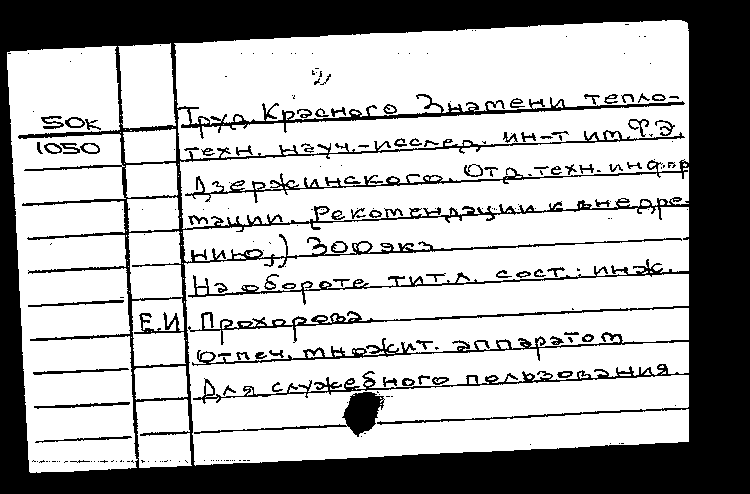 2
50к Труд. Красного Знамени тепло-
1050 техн. науч.-исслед. ин-т им. Ф.Э.
Дзержинского. Отд. техн. инфор
мации. (Рекомендации к внедре-
нию;) 300экз.
На обороте тит.л. сост.: инж.
Е.И. Прохорова.
Отпеч. множит. аппаратом
Для служебного пользования.